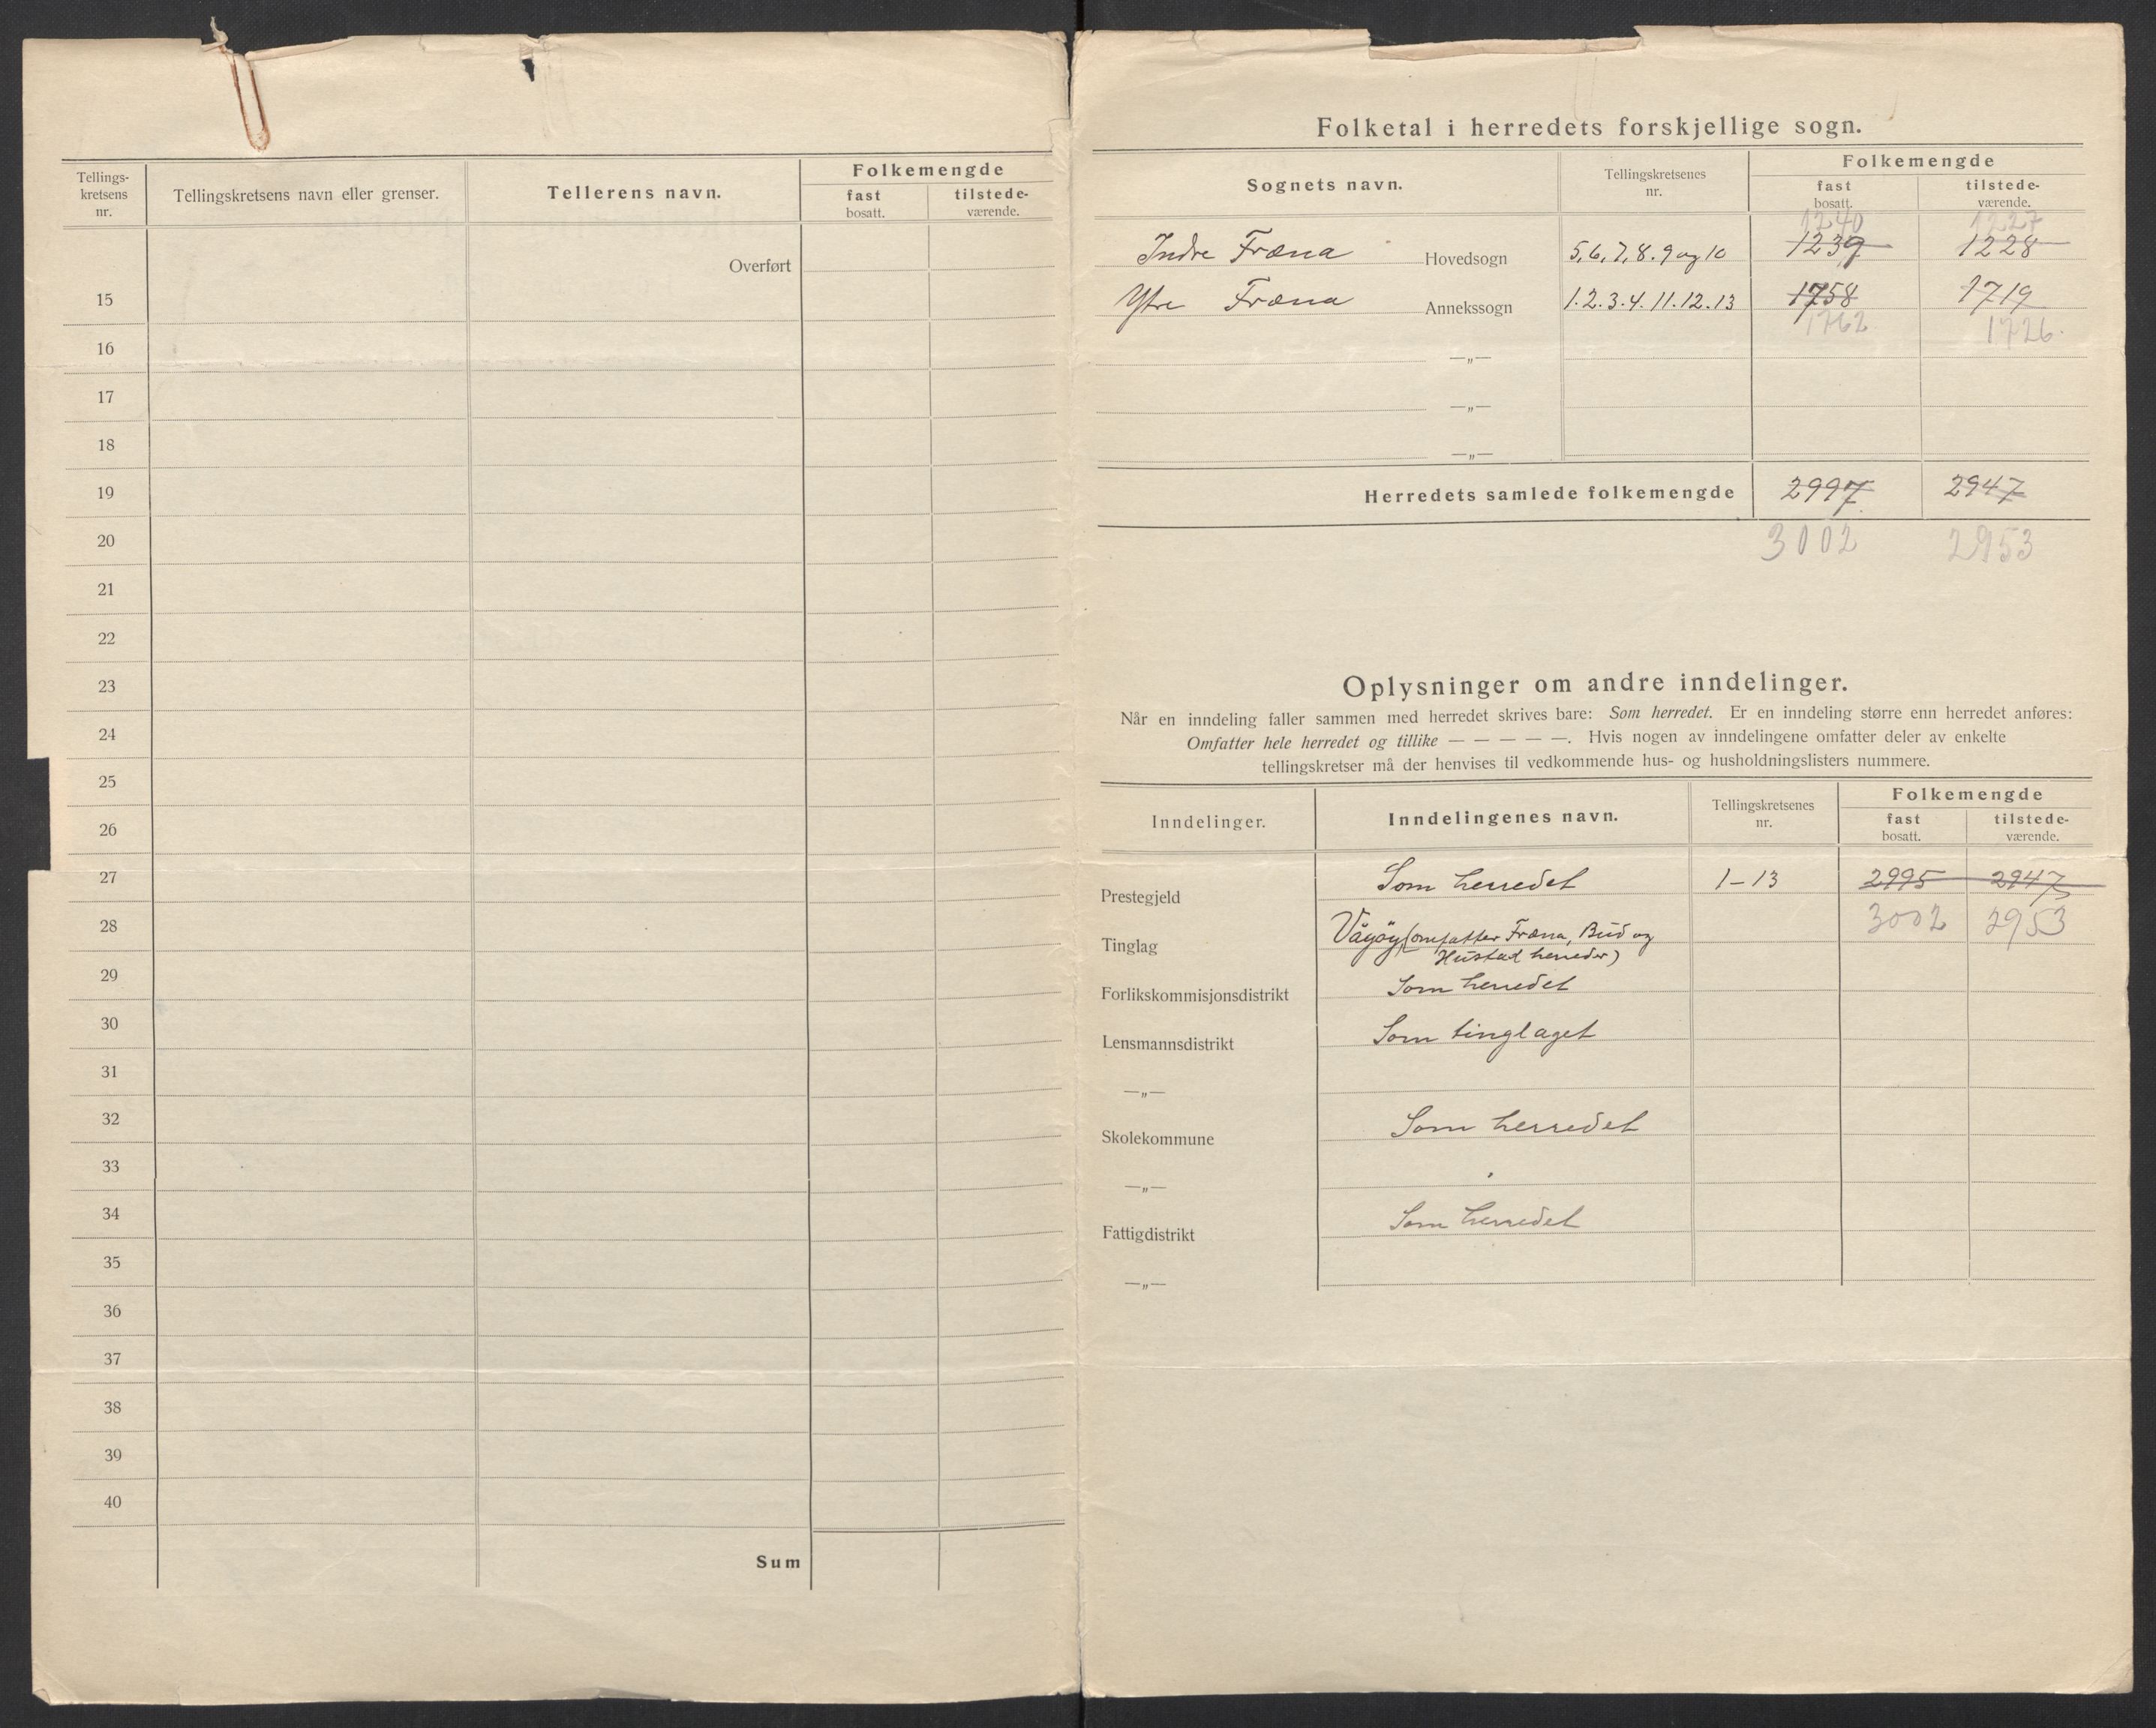 Tellings-
kretsens
nr.
Tellingskretsens navn eller grenser.
Tellerens navn.
Folkemengde
fast
bosatt.
tilstede-
værende.
Overført
15
16
17
18
19
20
21
22
23
24
25
26
27
28
29
30
31
32
33
34
35
36
37
38
39
40
Sum
Folketal i herredets forskjellige sogn.
Sognets navn.
Tellingskretsenes
nr.
Folkemengde
fast
bosatt.
tilstede-
værende.
1240 1227
Indre Fræna Hovedsogn 5,6,7,8.9 og 10 1239 1228
Ytre Fræna Annekssogn 1.2.3.4.11.12.13 1758 1719
1762 1726.
—„—
—„—
—„—
Herredets samlede folkemengde 2997 2947
3002 2953
Oplysninger om andre inndelinger.
Når en inndeling faller sammen med herredet skrives bare: Som herredet. Er en inndeling større enn herredet anføres:
Omfatter hele herredet og tillike — — — — —. Hvis nogen av inndelingene omfatter deler av enkelte
tellingskretser må der henvises til vedkommende hus- og husholdningslisters nummere.
Inndelinger.
Inndelingenes navn.
Tellingskretsenes
nr.
Folkemengde
fast
bosatt.
tilstede-
værende.
Prestegjeld Som herredet 1-13 2995 2947
3002 2953
Tinglag Vågøy (omfatter Fræna, Bud og
Hustad herreder)
Forlikskommisjonsdistrikt Som herredet
Lensmannsdistrikt Som tinglaget
—„—
Skolekommune Som herredet
—„—
Fattigdistrikt Som herredet
—„—